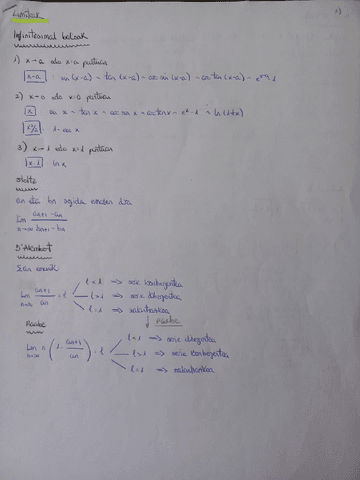 Limiteak
1)
Infinitesimal baliokideak
1) x→a edo x=a puntuan
x-a : sin(x-a) ~ tan(x-a) ~ arcsin(x-a) ~ arctan(x-a) ~
2) x→0 edo x=0 puntuan
x : sin x ~ tan x ~ arcsin x ~ arctan x ~ eˣ-1 ~ ln(1+x)
x²/2 : 1-cos x
3) x→1 edo x=1 puntuan
x-1 ln x
Stoltz
an eta bn segida
lim n→∞ (an+1 - an)/(bn+1 - bn)
D'Alembert
Izan
lim n→∞ an+1/an = l
l<1 ⇒ serie konbergentea
l>1 ⇒ serie dibergentea
l=1 ⇒ zalantzazkoa
↓ Raabe
Raabe
lim n→∞ n(1 - an+1/an) = l
l<1 ⇒ serie dibergentea
l>1 ⇒ serie konbergentea
l=1 ⇒ zalantzazkoa